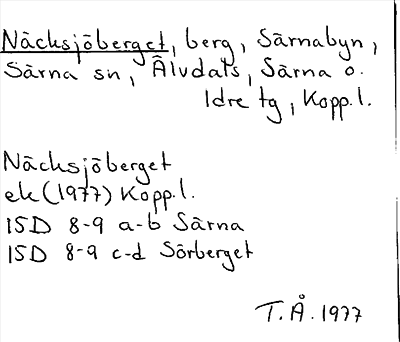 Näcksjöberget, berg, Särnabyn,
Särna sn, Älvdals, Särna o.
Idre tg, Kopp.l.
Näcksjöberget
ek (1977) Kopp.l.
ISD 8-9 a-b Särna
ISD 8-9 c-d Sörberget
T.Å. 1977